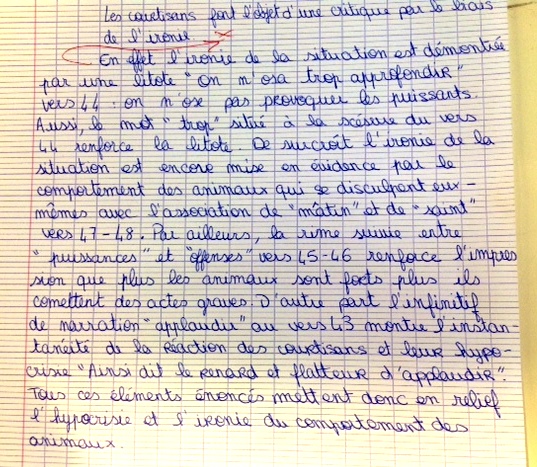 Les courtisans font l'objet d'une critique par le biais
de l'ironie
En effet l'ironie de la situation est démontrée
par une litote "on n'osa trop approfondir"
vers 44 : on n'ose pas provoquer les puissants.
Aussi, le mot "trop" situé à la scésure du vers
44 renforce la litote. De surcroît l'ironie de la
situation est encore mise en évidence par le
comportement des animaux qui se disculpent eux-
mêmes avec l'association de "mâtin" et de "saint"
vers 47-48. Par ailleurs, la rime suivie entre
"puissances" et "offenses" vers 45-46 renforce l'impres
sion que plus les animaux sont forts plus ils
comettent des actes graves. D'autre part l'infinitif
de narration "applaudir" au vers 43 montre l'instan-
tanéité de la réaction des courtisans et leur hypo-
crisie "Ainsi dit le renard et flatteur d'applaudir".
Tous ces éléments énoncés mettent donc en relief
l'hypocrisie et l'ironie du comportement des
animaux.